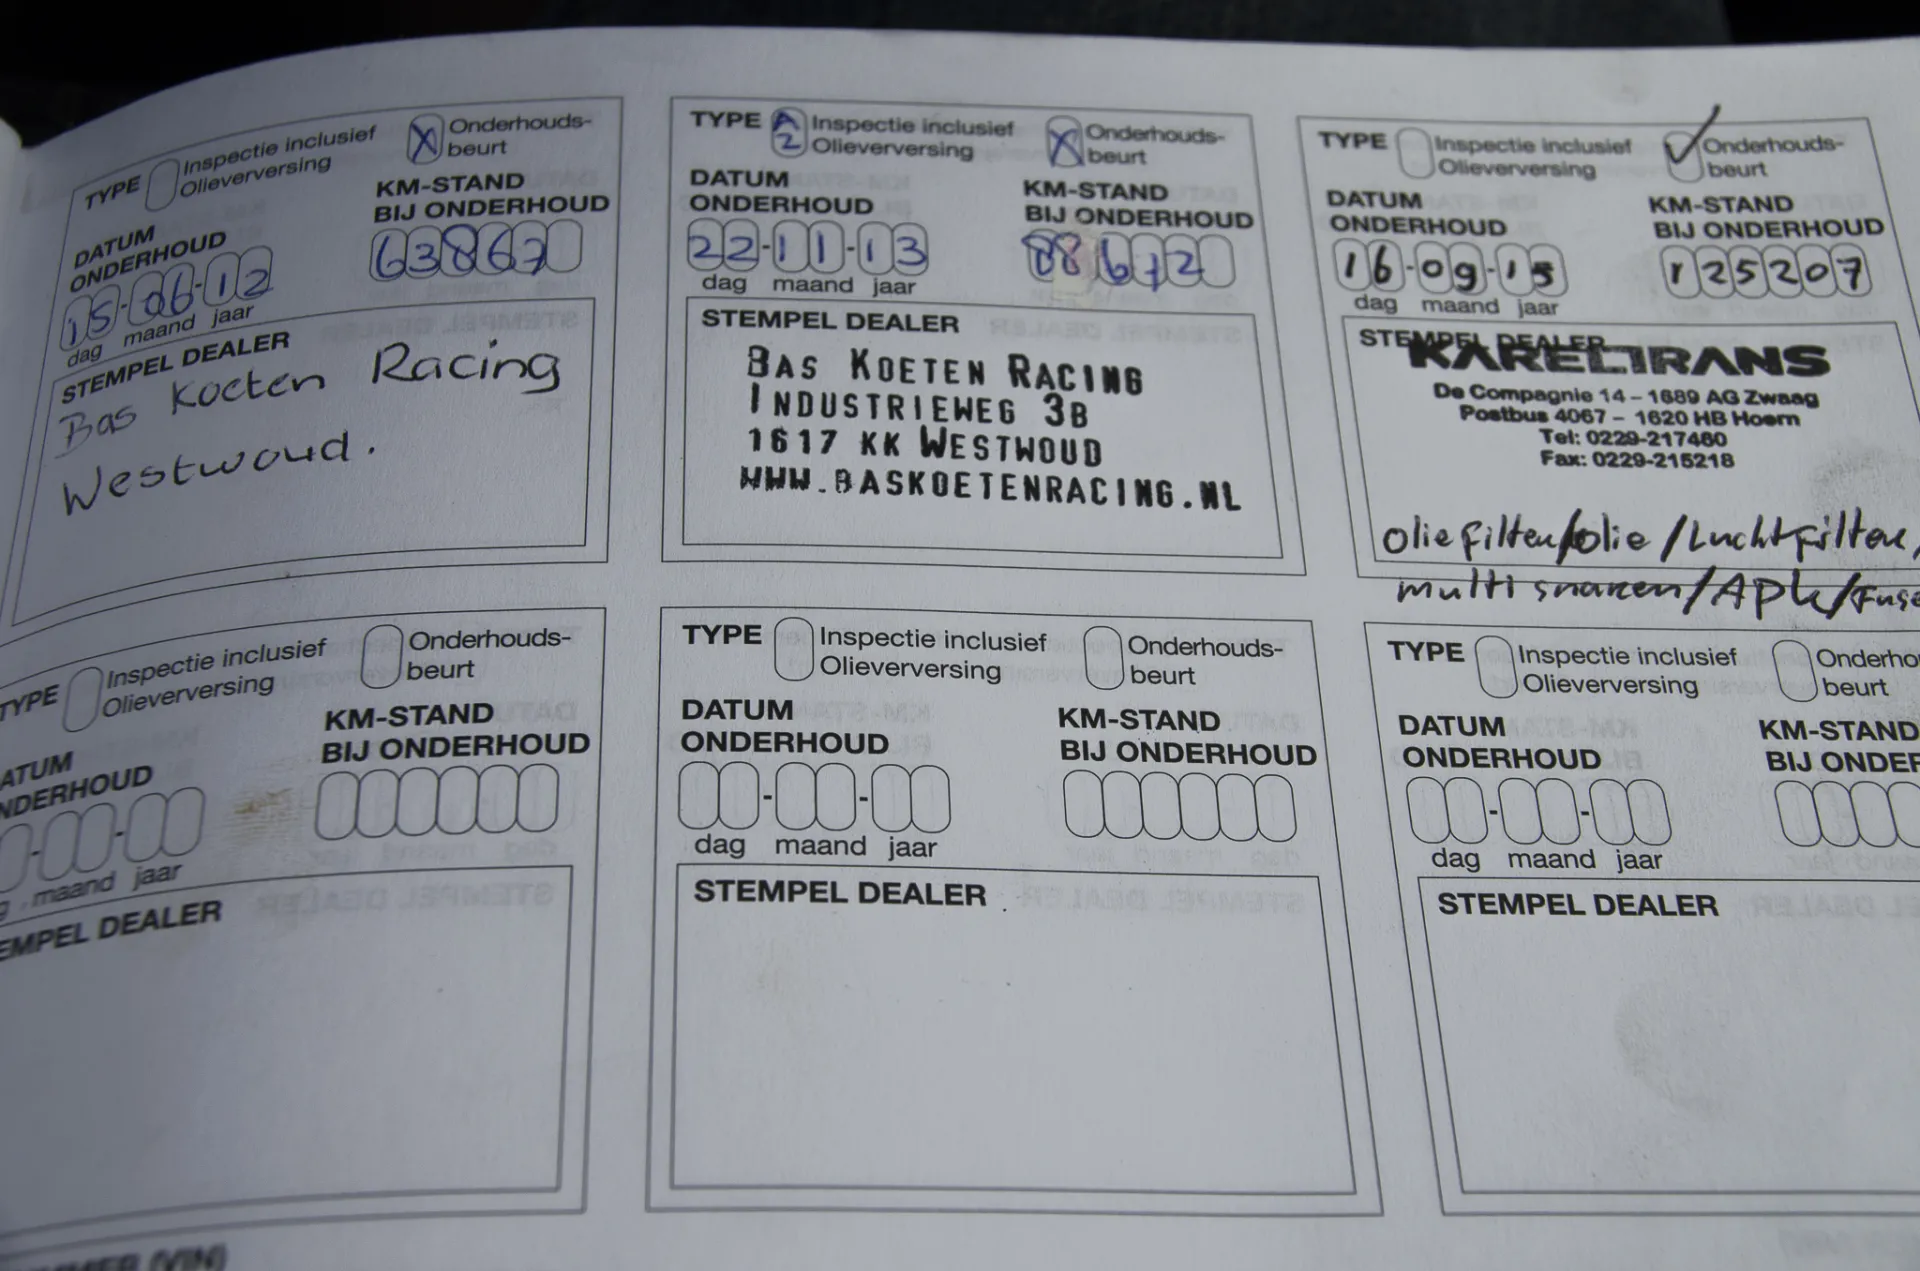 TYPE Inspectie inclusief Olieverversing X Onderhouds-beurt
DATUM ONDERHOUD
KM-STAND BIJ ONDERHOUD
15-06-12
63867
dag maand jaar
STEMPEL DEALER
Bas Koeten Racing
Westwoud.
TYPE A2 Inspectie inclusief Olieverversing X Onderhouds-beurt
DATUM ONDERHOUD
KM-STAND BIJ ONDERHOUD
22-11-13
88672
dag maand jaar
STEMPEL DEALER
BAS KOETEN RACING
INDUSTRIEWEG 3B
1617 KK WESTWOUD
WWW.BASKOETENRACING.NL
TYPE Inspectie inclusief Olieverversing ✓ Onderhouds-beurt
DATUM ONDERHOUD
KM-STAND BIJ ONDERHOUD
16-09-15
125207
dag maand jaar
STEMPEL DEALER
KARELTRANS
De Compagnie 14 – 1689 AG Zwaag
Postbus 4067 – 1620 HB Hoorn
Tel: 0229-217460
Fax: 0229-215218
oliefilter/olie/Luchtfilter,
multi snaren/Apk/
TYPE Inspectie inclusief Olieverversing Onderhouds-beurt
ATUM NDERHOUD
KM-STAND BIJ ONDERHOUD
maand jaar
EMPEL DEALER
TYPE Inspectie inclusief Olieverversing Onderhouds-beurt
DATUM ONDERHOUD
KM-STAND BIJ ONDERHOUD
dag maand jaar
STEMPEL DEALER
TYPE Inspectie inclusief Olieverversing Onderho beurt
DATUM ONDERHOUD
KM-STAND BIJ ONDER
dag maand jaar
STEMPEL DEALER
(VIN)